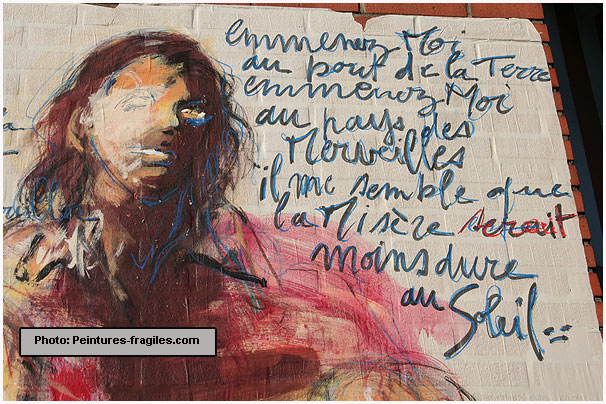 emmenez Moi
au bout de la Terre
emmenez Moi
au pays des
Merveilles
il me semble que
la Misère serait
moins dure
au Soleil..
Photo: Peintures-fragiles.com